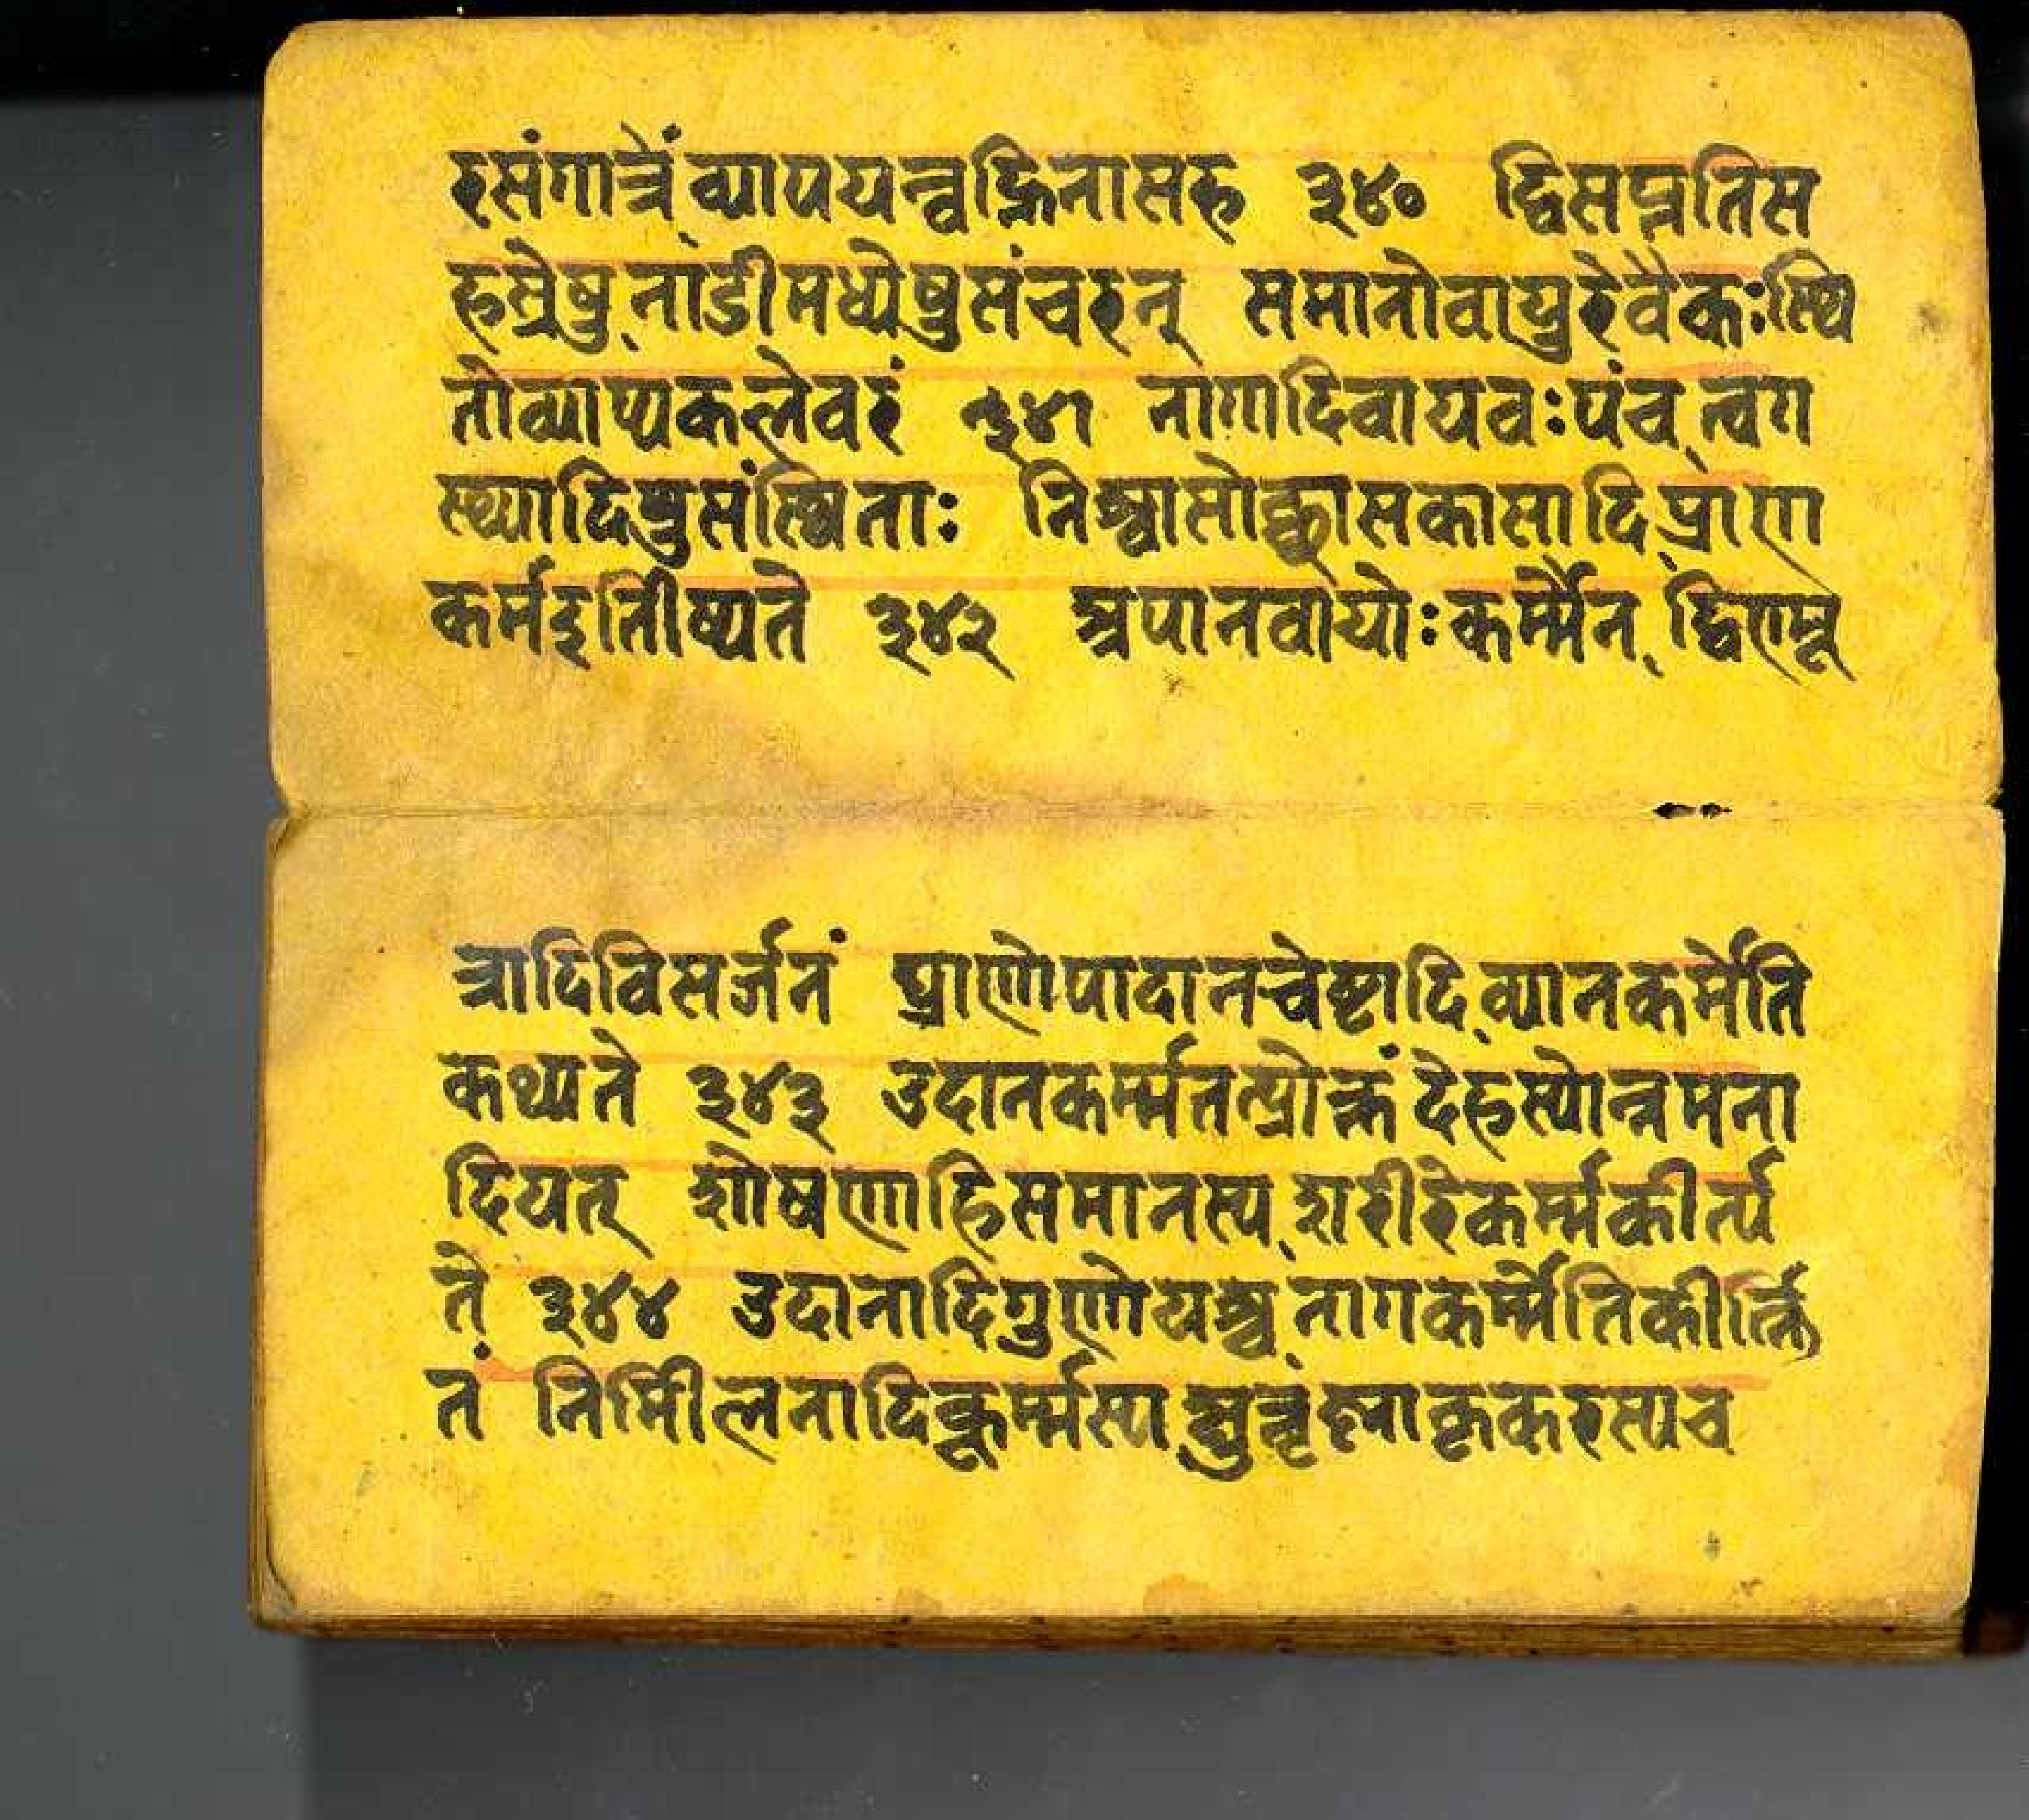 रसंगात्रैं व्यापयन्वह्निनासह ३४० द्विसप्ततिस
हस्रेषु नाडीमध्येषुसंचरन् समानोवायुरेवैकःस्थि
तोव्याप्यकलेवरं ३४१ नागादिवायवःपंच त्वग
स्थ्यादिषुसंस्थिताः निश्वासोच्छ्वासकासादि प्राण
कर्मइतीष्यते ३४२ अपानवायोःकर्म्मैन द्विण्मू
त्रादिविसर्जनं प्राणोपादानचेष्टादि व्यानकर्मेति
कथ्यते ३४३ उदानकर्म्मतत्प्रोक्तं देहस्योन्नमना
दियत् शोषणादिसमानस्य शरीरेकर्म्मकीर्त्य
ते ३४४ उदानादिगुणोयश्च नागकर्म्मेतिकीर्त्ति
तं निमीलनादिकूर्म्मस्य क्षुत्तृष्णाकृकरस्यच